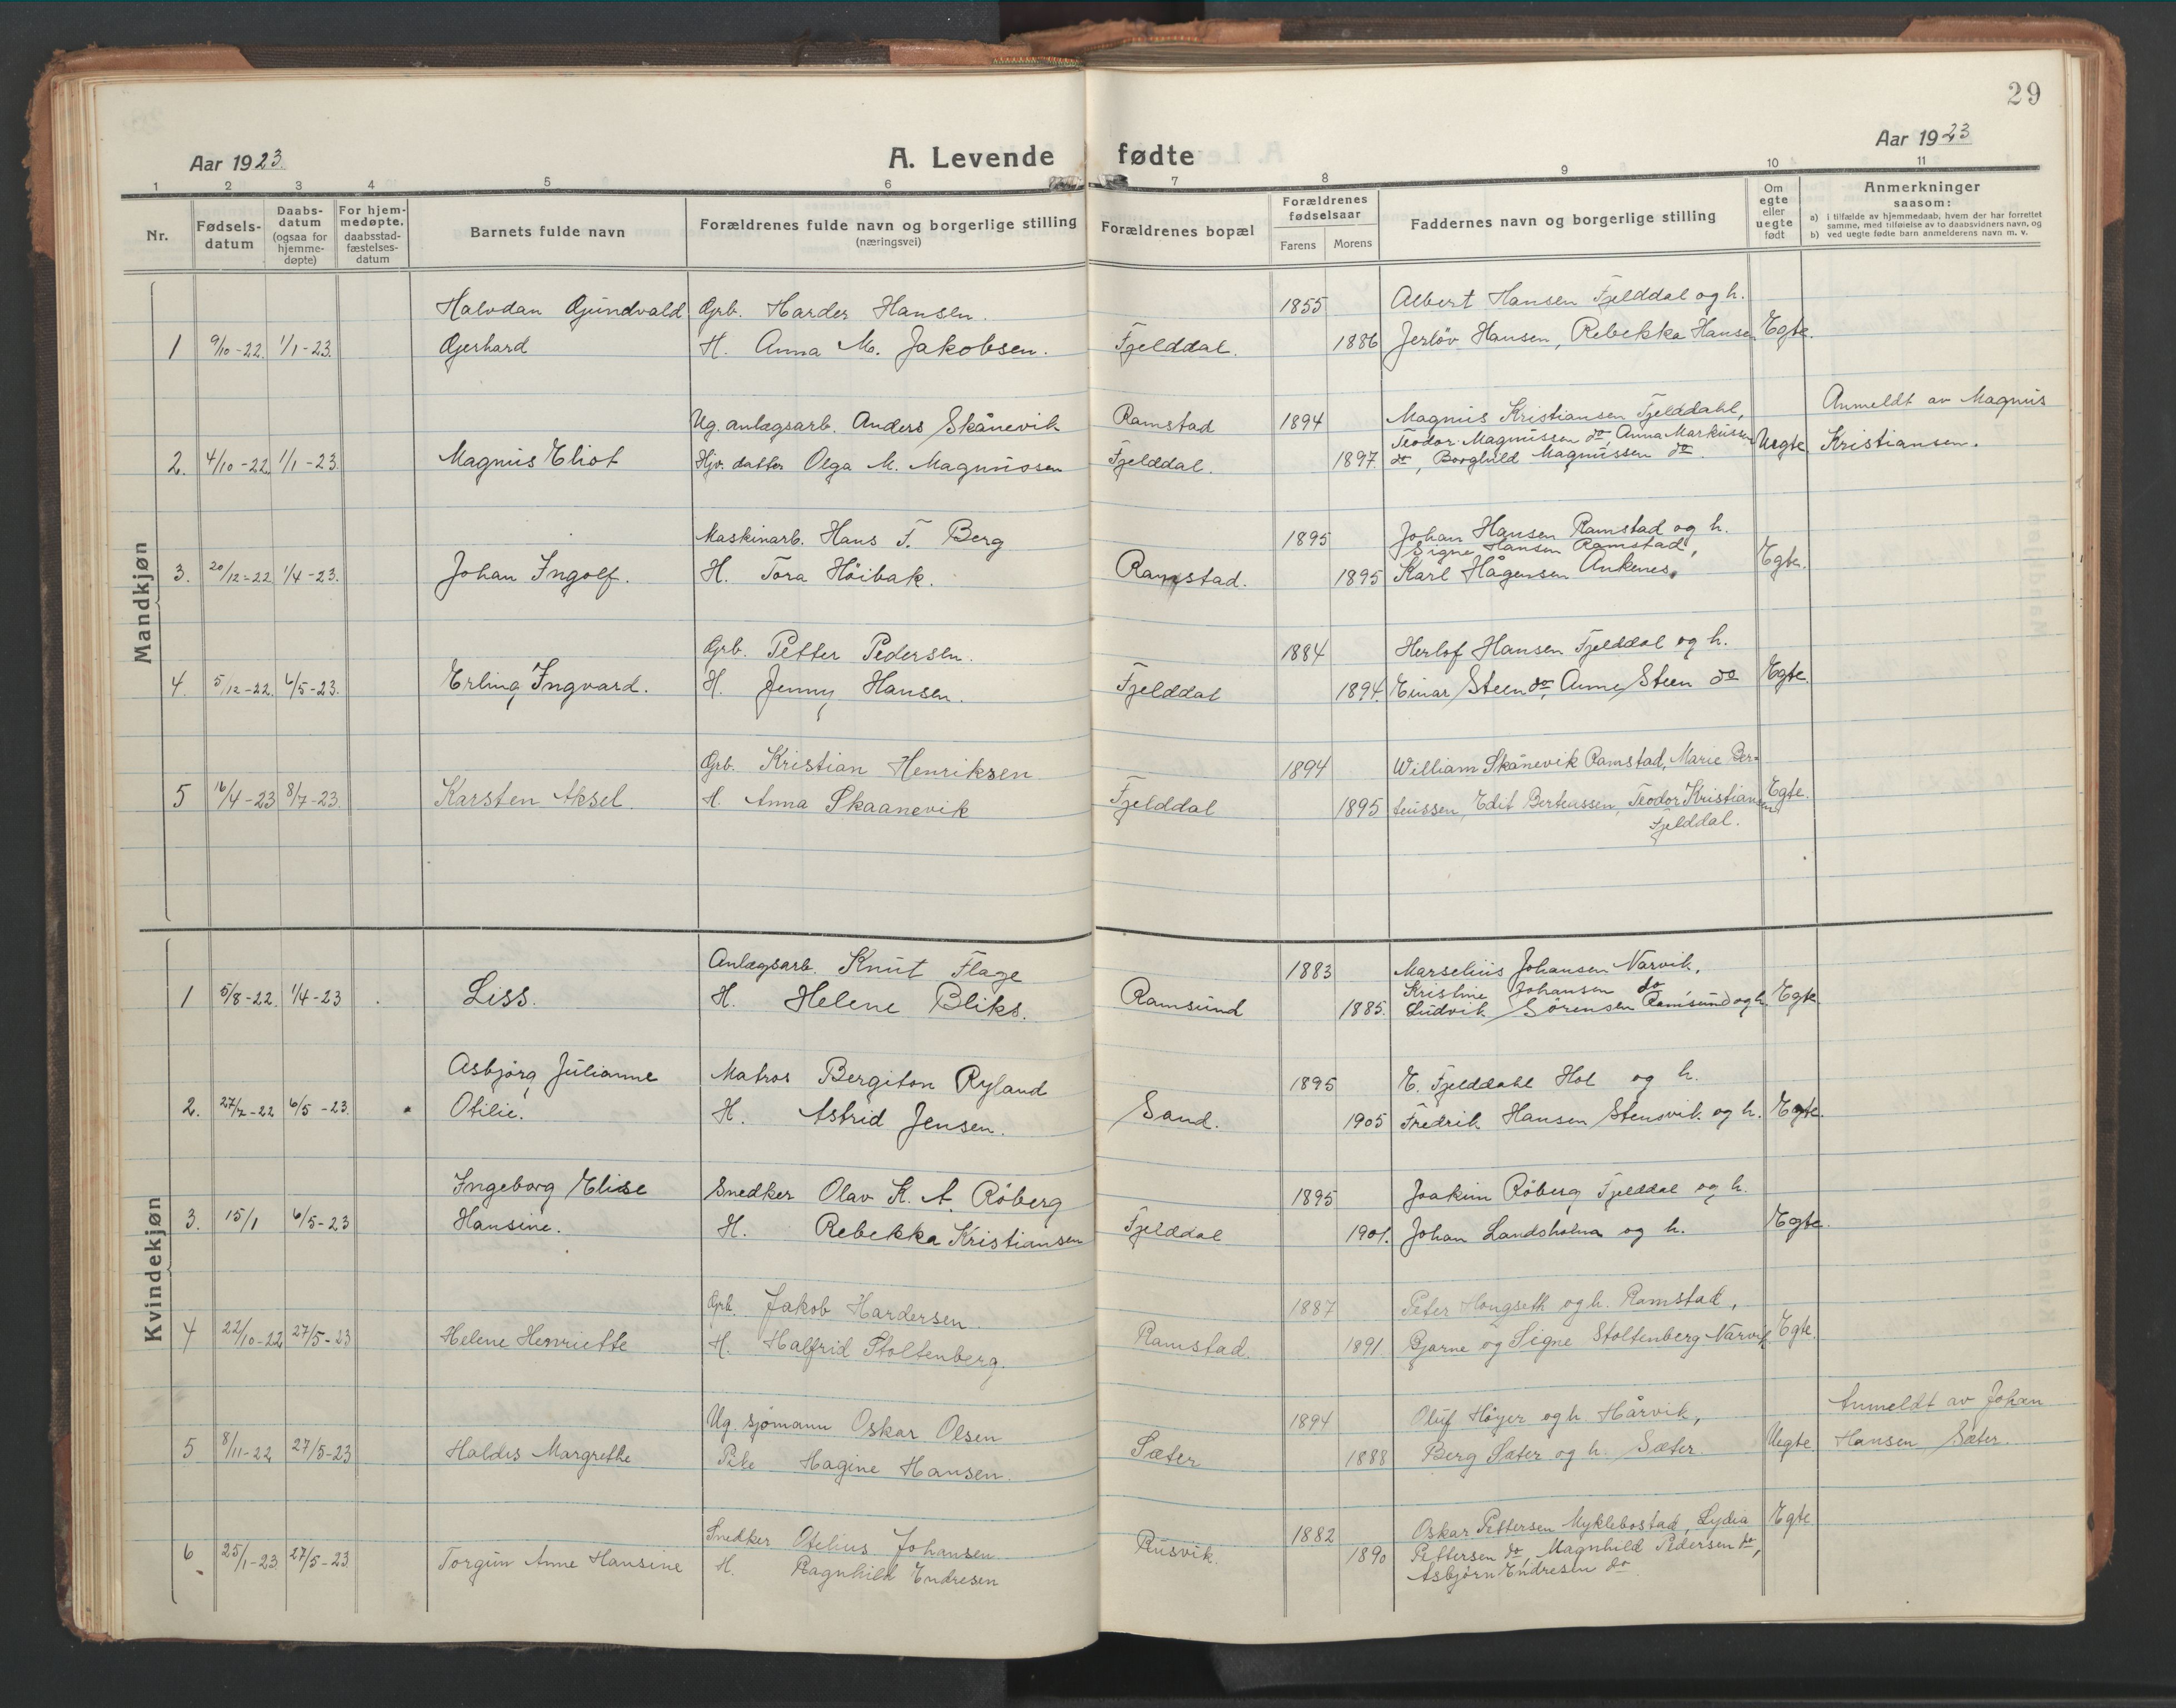 29
Aar 1923.
A. Levende fødte
Aar 1923
1 2 3 4 5 6 7 8 9 10 11
Nr.
Fødsels-
datum
Daabs-
datum
(ogsaa for
hjemme-
døpte)
For hjem-
medøpte.
daabsstad-
fæstelses-
datum
Barnets fulde navn
Forældrenes fulde navn og borgerlige stilling
(næringsvei)
Forældrenes bopæl
Forældrenes
fødselsaar
Farens Morens
Faddernes navn og borgerlige stilling
Om
egte
eller
uegte
født
Anmerkninger
saasom:
a) i tilfælde av hjemmedaab, hvem der har forrettet
samme, med tilføielse av to daabsvidners navn, og
b) ved uegte fødte barn anmelderens navn m. v.
Mandkjøn
Halvdan Gjundvald Grb. Harder Hansen. 1855 Albert Hansen Fjelddal og h.
1 9/10-22. 1/1-23. Gjerhard H. Anna M. Jakobsen. Fjelddal. 1886 Jerløv Hansen, Rebekka Hansen Egte.
Ug. anlægsarb. Anders Skånevik Ramstad 1894 Magnus Kristiansen Fjelddahl, Anmeldt av Magnus
Teodor Magnussen do, Anna Markussen
2. 4/10-22. 1/1-23. Magnus Eliot Hjv. datter Olga M. Magnussen Fjelddal. 1897. do, Borghild Magnussen do. Uegte. Kristiansen.
Maskinarb. Hans F. Berg 1895 Johan Hansen Ramstad og h.
Signe Hansen Ramstad,
3. 20/12-22 1/4-23. Johan Ingolf. H. Tora Höibak. Ramstad. 1895 Karl Hågensen Ankenes. Egte.
Grb. Petter Pedersen. 1884 Herlof Hansen Fjelddal og h.
4. 5/12-22. 6/5-23. Erling Ingvard. H. Jenny Hansen. Fjelddal 1894. Einar Steen do, Anne Steen do Egte.
Grb. Kristian Henriksen 1894 William Skånevik Ramstad, Marie Ber-
5 16/4-23 8/7-23. Karsten Aksel. H. Anna Skaanevik Fjelddal 1895 teussen, Edit Berteussen, Teodor Kristiansen Egte.
Fjelddal.
Kvindekjøn
Anlægsarb. Knut Flage 1883 Marselius Johansen Narvik,
Kristine Johansen do
1 5/8-22. 1/4-23 Liss. H. Helene Bliks. Ramsund 1885. Ludvik Sörensen Ramsund og h. Egte.
Asbjörg Julianne Matros Bergiton Ryland 1895 E. Fjelddahl Hol og h.
2. 27/7-22 6/5-23. Otilie. H. Astrid Jensen. Sand. 1905 Fredrik Hansen Stensvik og h. Egte.
Ingeborg Elise Snedker Olav K. A. Röberg 1895 Joakim Röberg Fjelddal og h.
3. 15/1 6/5-23 Hansine. H. Rebekka Kristiansen Fjelddal 1901. Johan Landsholm og h. Egte.
Grb. Jakob Hardersen. 1887 Peter Hongseth og h. Ramstad,
4 22/10-22 27/5-23 Helene Henriette H. Halfrid Stoltenberg. Ramstad. 1891 Bjarne og Signe Stoltenberg Narvik. Egte.
Ug. sjømann Oskar Olsen 1894 Oluf Höyer og h. Hårvik, Anmeldt av Johan
5 8/11-22 27/5-23 Haldis Margrethe Pike Hagine Hansen. Sæter 1888 Berg Sæter og h. Sæter. Uegte Hansen Sæter.
Snedker Otelius Johansen 1882 Oskar Pettersen Myklebostad, Lydia Egte
6 25/1-23 27/5-23 Torgun Anne Hansine H. Ragnhild Endresen Rusvik. 1890 Pettersen do, Magnhild Pedersen do,
Asbjörn Endresen do.